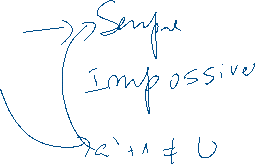 Sempre
Impossive
a² + 1 ≠ 0